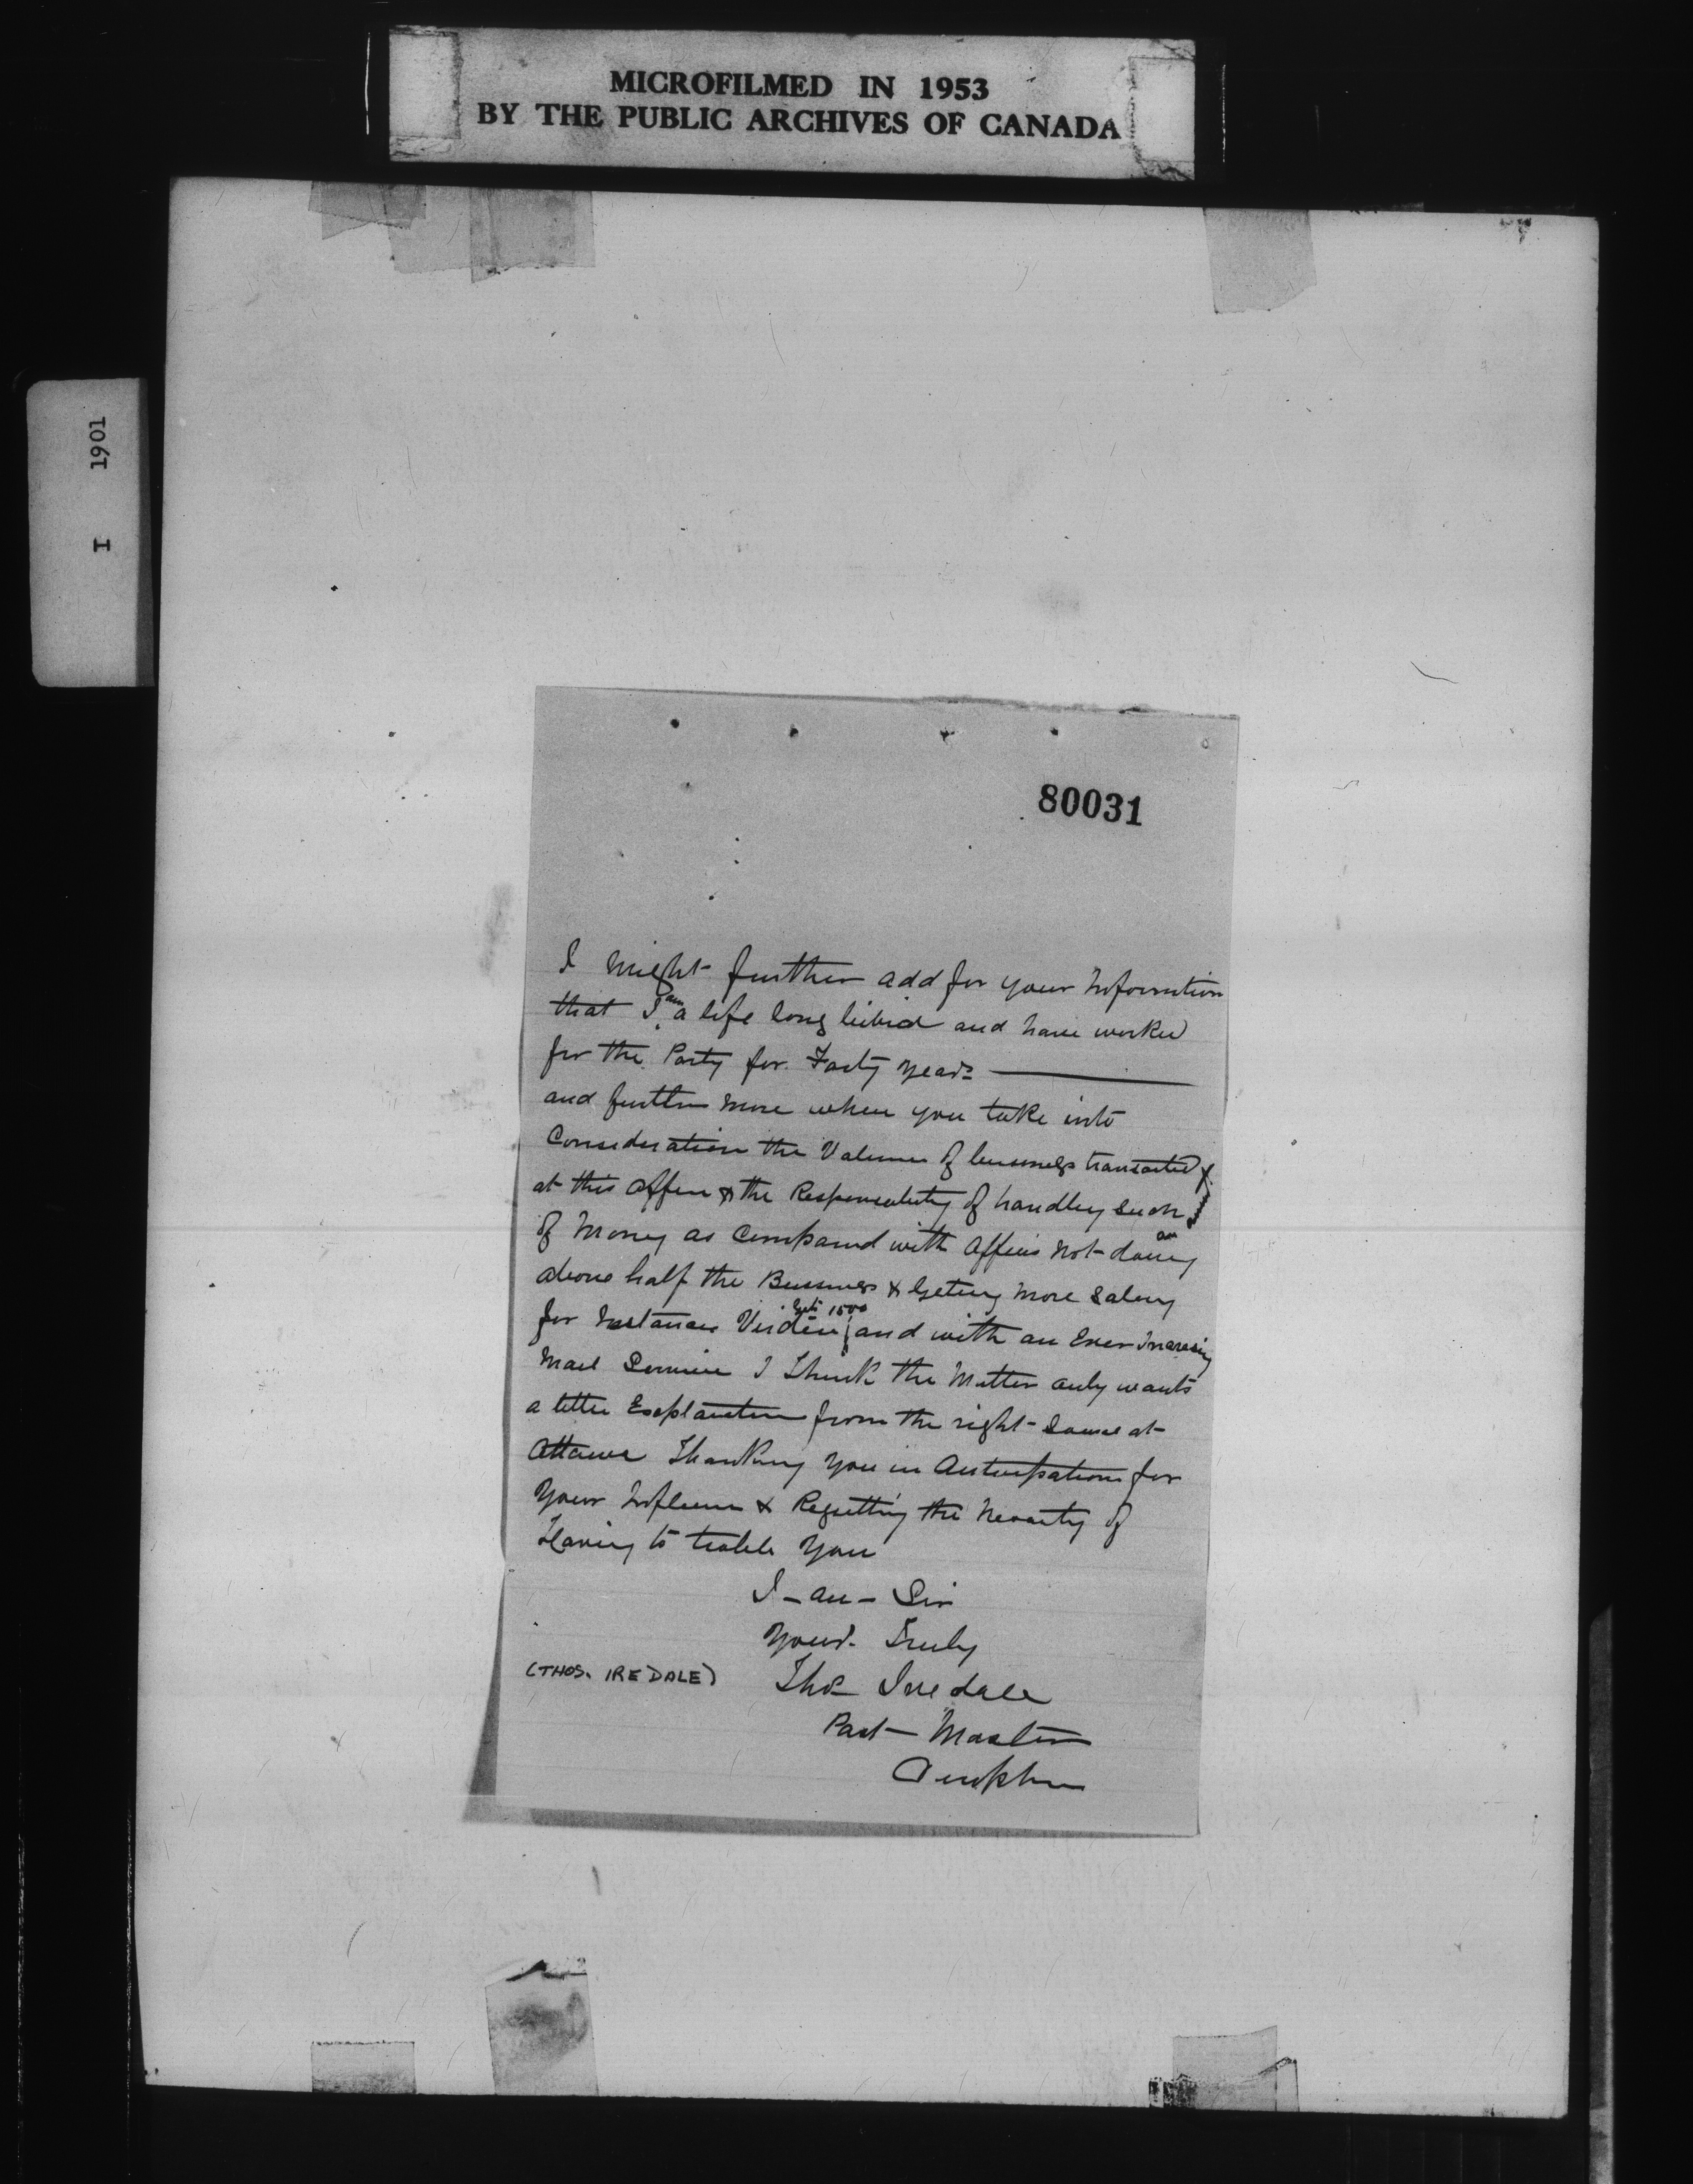 MICROFILMED IN 1953
BY THE PUBLIC ARCHIVES OF CANADA
I 1901
80031
I might further add for your Information
that I am a life long liberal and have worked
for the Party for Forty years
and further more when you take into
Consideration the Volume of bussness transacted
at this office & the Responsability of handling such
of Money as Compared with offices not doing
above half the Bussness & Geting More Salary
for Instance Virden Gets 1500 and with an Ever Increasing
Mail Service I Think the Matter only wants
a little Explanation from the right Source at
Ottawa Thanking you in Anticipation for
Your Influence & Regretting the Necessity of
Having to trouble You
I - am - Sir
Yours Truly
(THOS. IREDALE) Thos Iredale
Post Master